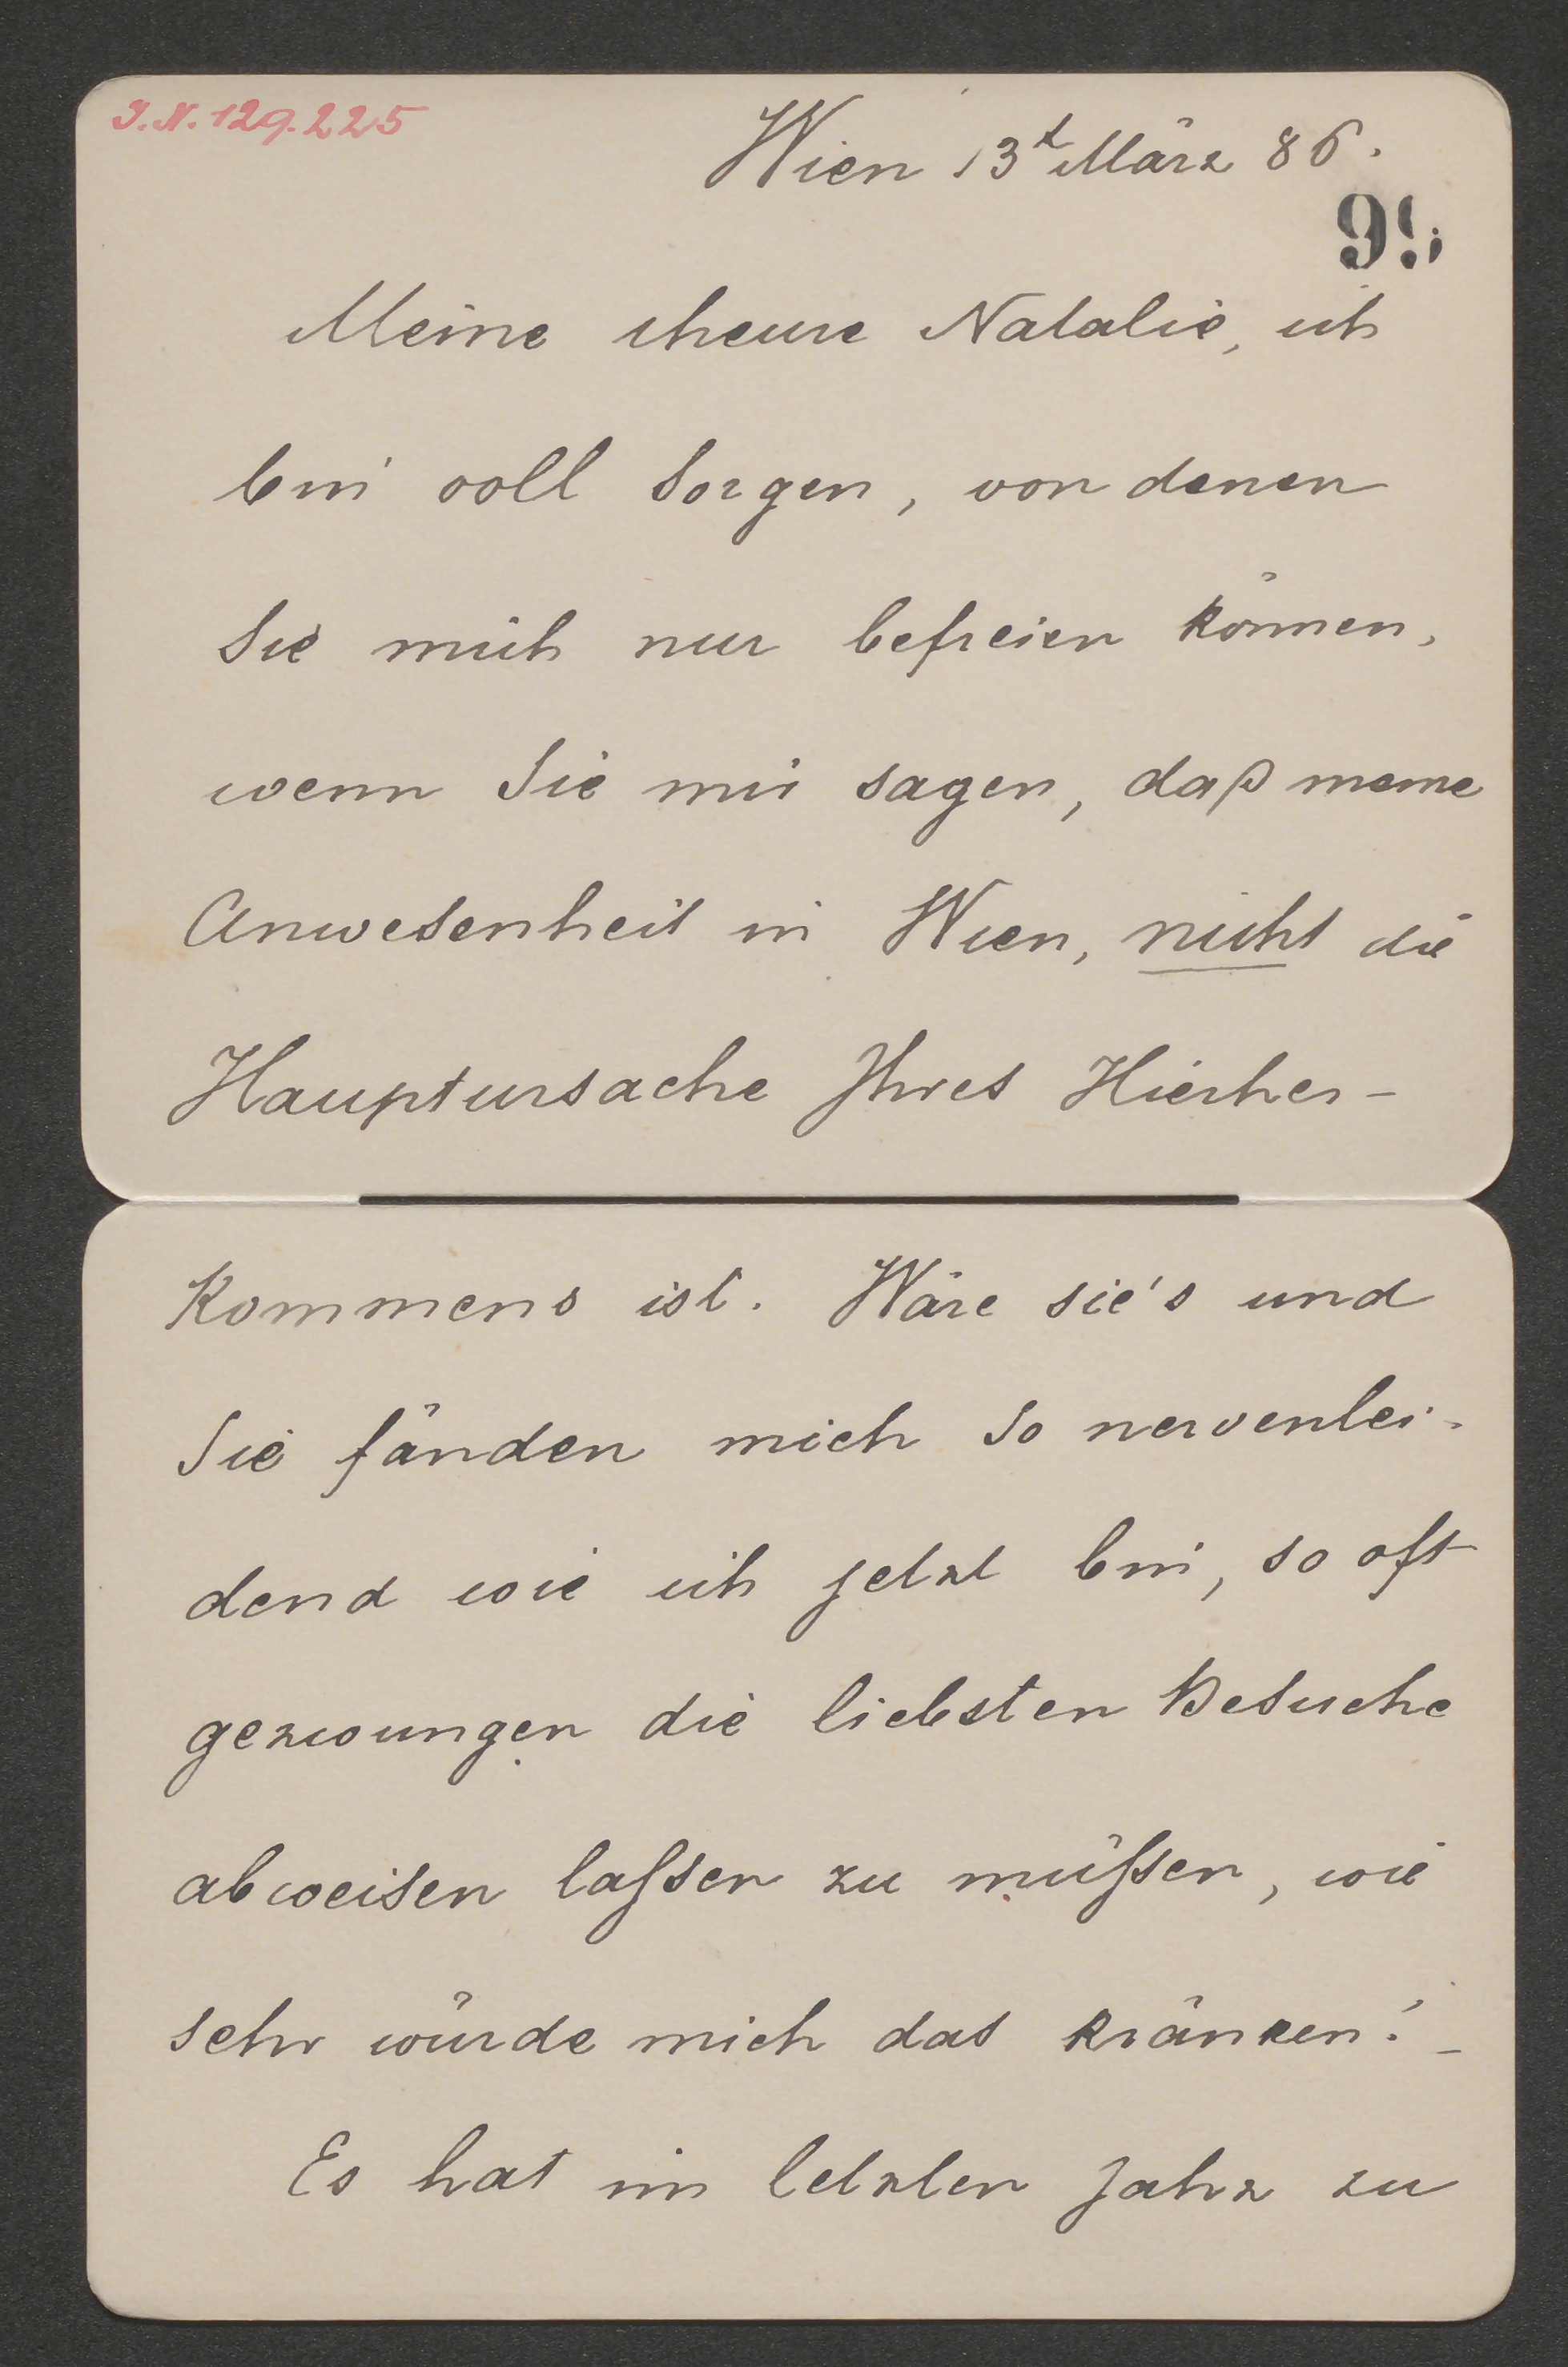 I.N. 129.225
Wien 13t März 86.
99
Meine theure Natalie, ich
bin voll Sorgen, von denen
Sie mich nur befreien können,
wenn Sie mir sagen, daß meine
Anwesenheit in Wien, nicht die
Hauptursache Ihres Hierher-
Kommens ist. Wäre sie's und
Sie fänden mich so nervenlei-
dend wie ich jetzt bin, so oft
gezwungen die liebsten Besuche
abweisen laßen zu müßen, wie
sehr würde mich das kränken! –
Es hat im letzten Jahr zu